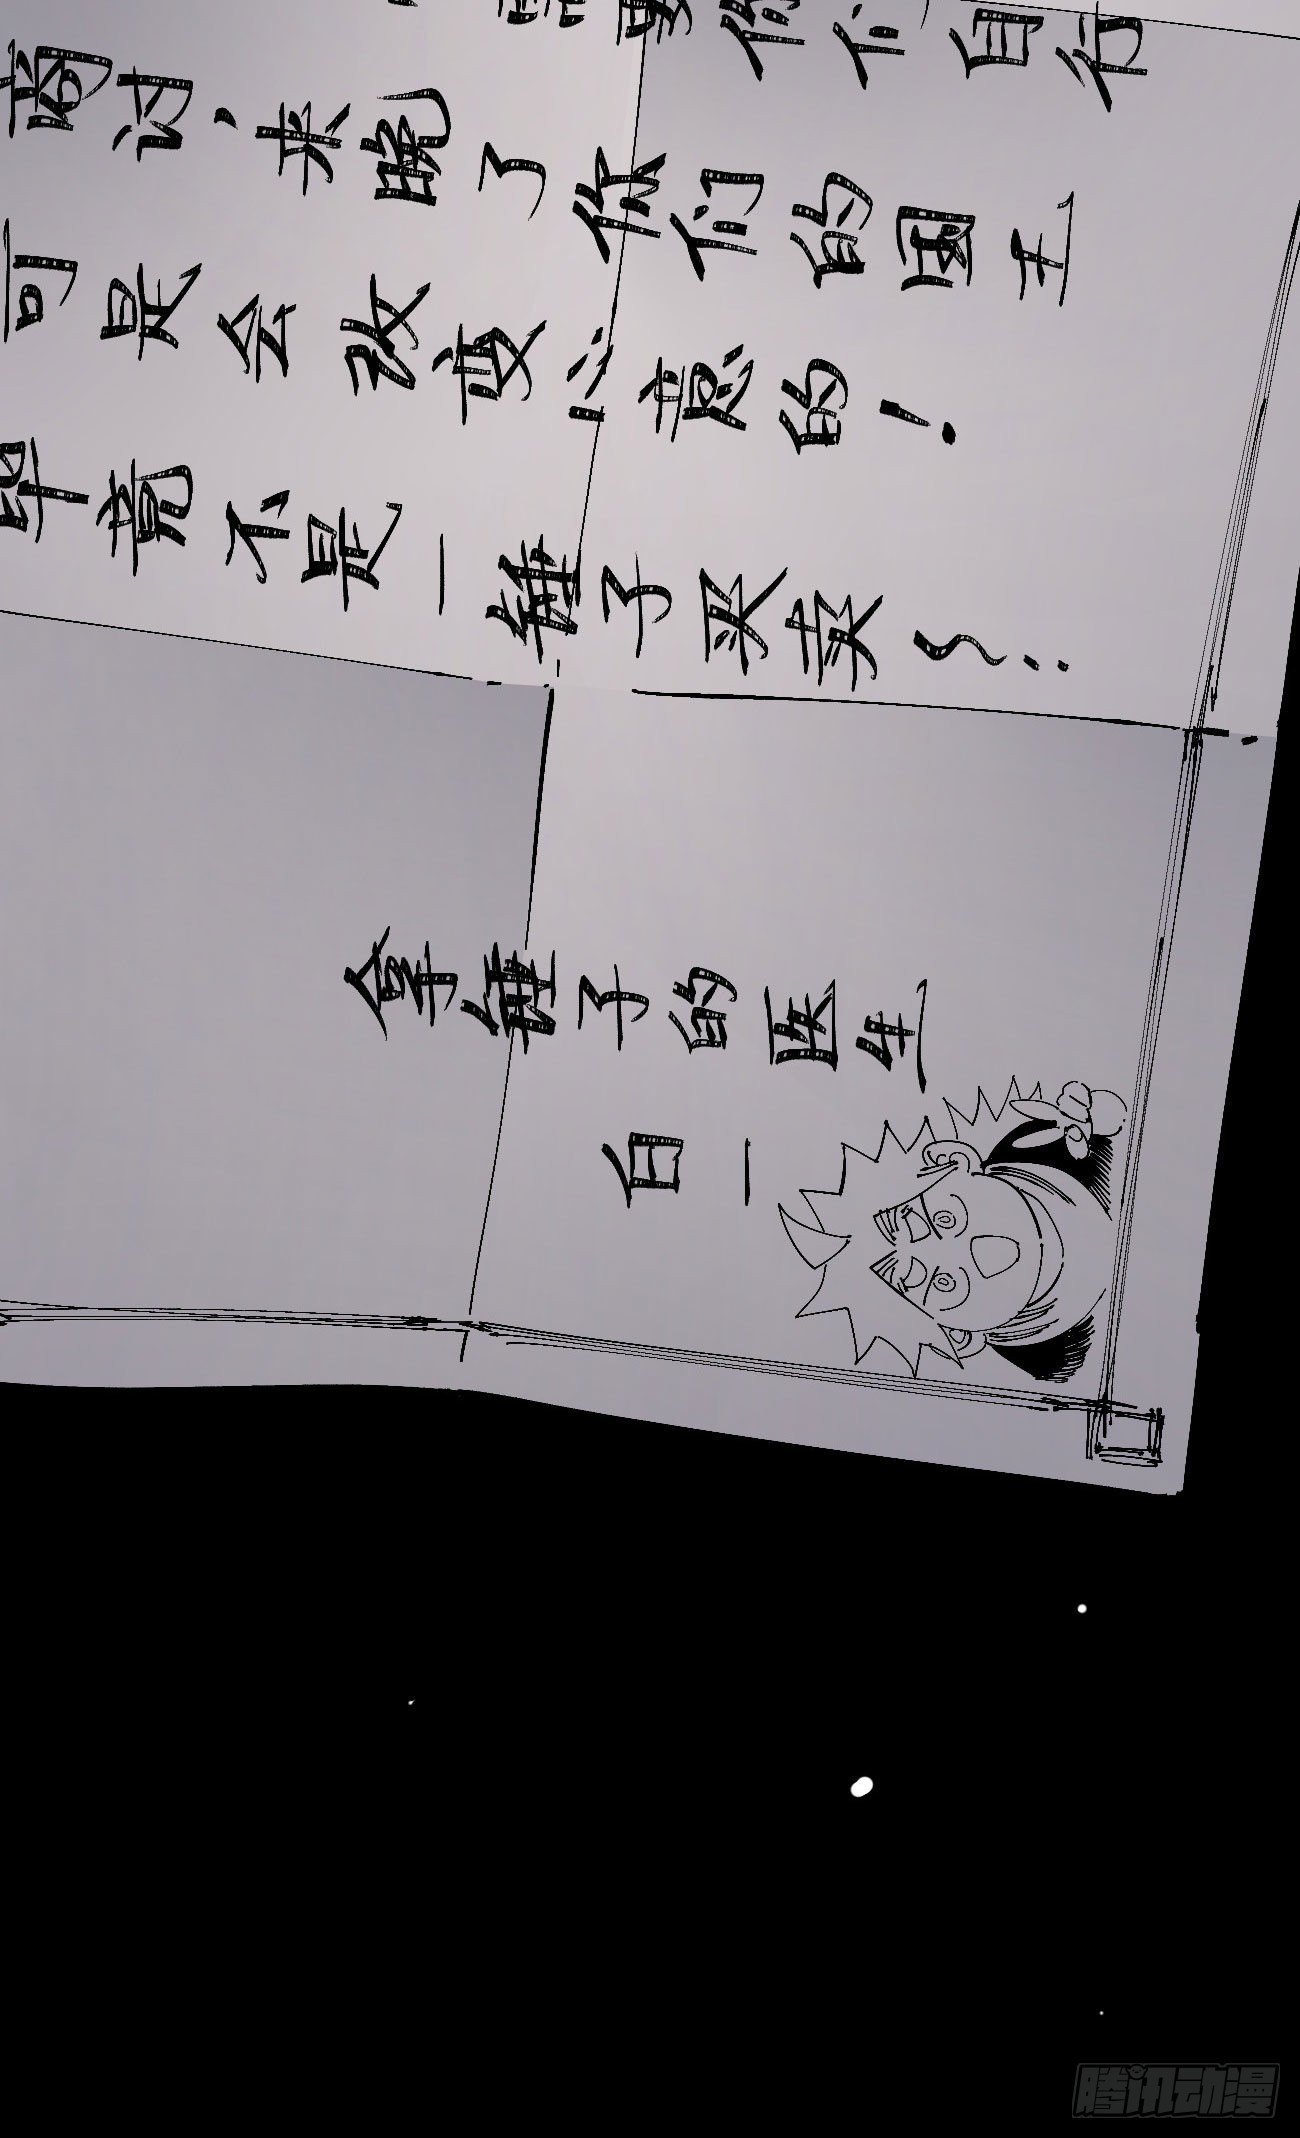 要你们自行
商讨，来晚了你们的国王
可是会改变心意的！
毕竟不是一锤子买卖～..
拿锤子的医生
白一
腾讯动漫